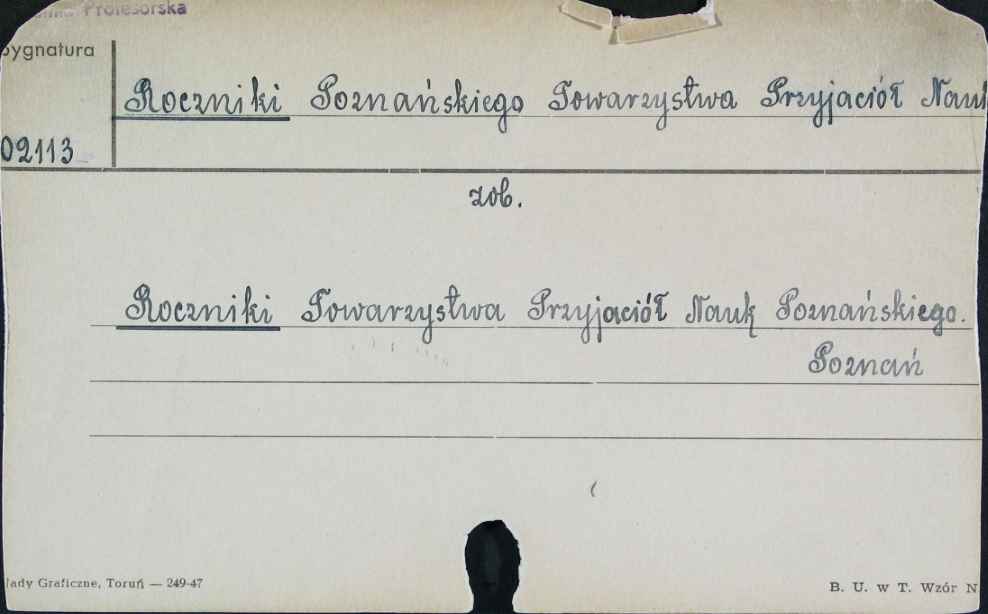 Profesorska
Sygnatura
Roczniki Poznańskiego Towarzystwa Przyjaciół Nauk
02113
zob.
Roczniki Towarzystwa Przyjaciół Nauk Poznańskiego.
Poznań
łady Graficzne, Toruń — 249-47
B. U. w T. Wzór N